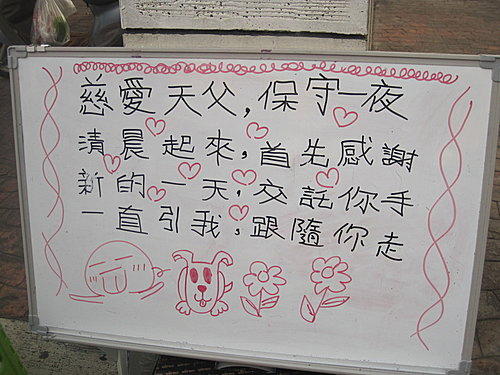 慈愛天父,保守一夜
清晨起來,首先感謝
新的一天,交託你手
一直引我,跟隨你走